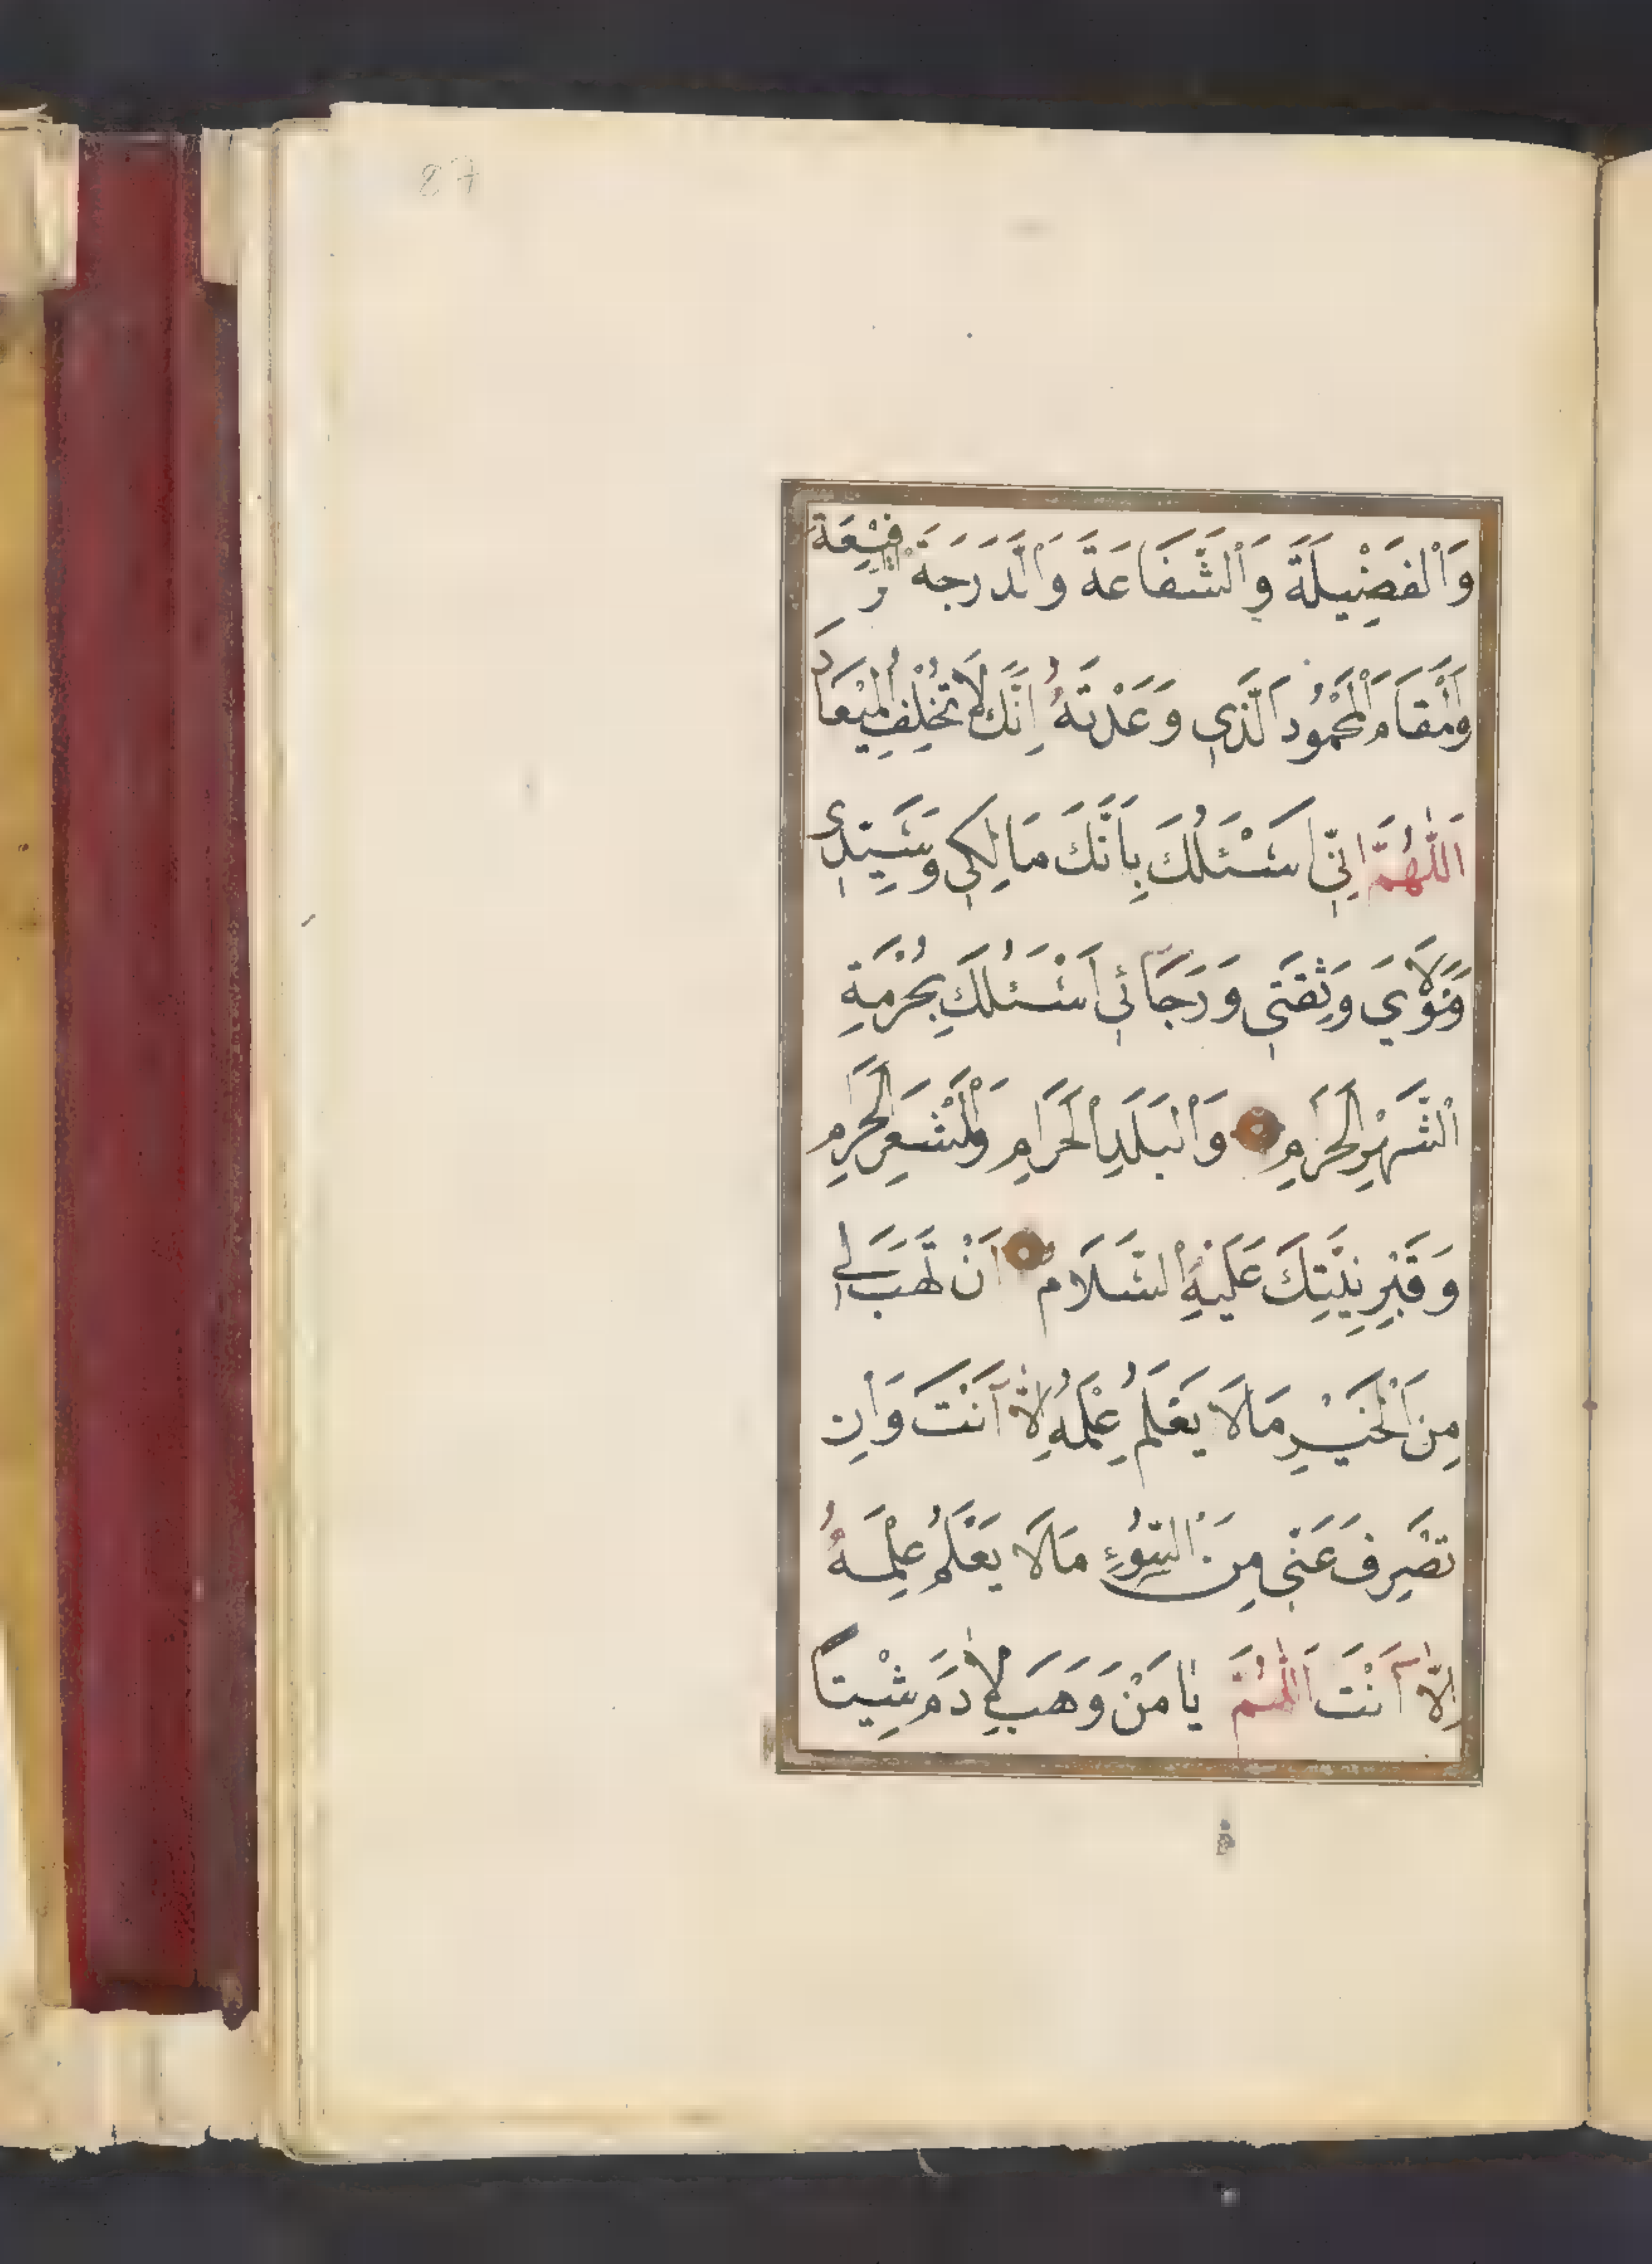 87
وَاْلفَضْيِلَةَ وَاْلشَّفَاعَةَ وَاْلَّدَرَجَةَ اْلَّرفِيْعَةَ
وَاْلمَقَامَ اْلمَحْمُودَ اَلَّذي وَعَدْتَهُ اِنَّكَ لَا تُخْلِفُ اْلمِيْعَادَ
اَللّٰهُمَّ اِنّي اَسْئَلُكَ بِاَنَّكَ مَالِكي وَسَيِّدي
وَمَوْلَايَ وَثِقَتي وَرَجَائي اَسْئَلُكَ بِحُرْمَةِ
اْلشَّهْرِ الْحَرَمِ وَاْلبَلَدِ اْلحَرَامِ وَاْلمَشْعَرِ الْحَرِمِ
وَقَبْرِ نَبِيِّكَ عَلَيْهِ اْلسَّلَام اَنْ تَهَبَ لي
مِنَ اْلخَيْرِ مَالَا يَعْلَمُ عِلْمَهُ اِلَّا اَنْتَ وَاَن
تَصْرِفَ عَنّي مِنَ اْلسُّوءِ مَالَا يَعْلَمُ عِلْمَهُ
اِلَّا اَنْتَ اَللّٰهُمَّ يَا مَنْ وَهَبَ لِاٰدَمَ شِيْتاً